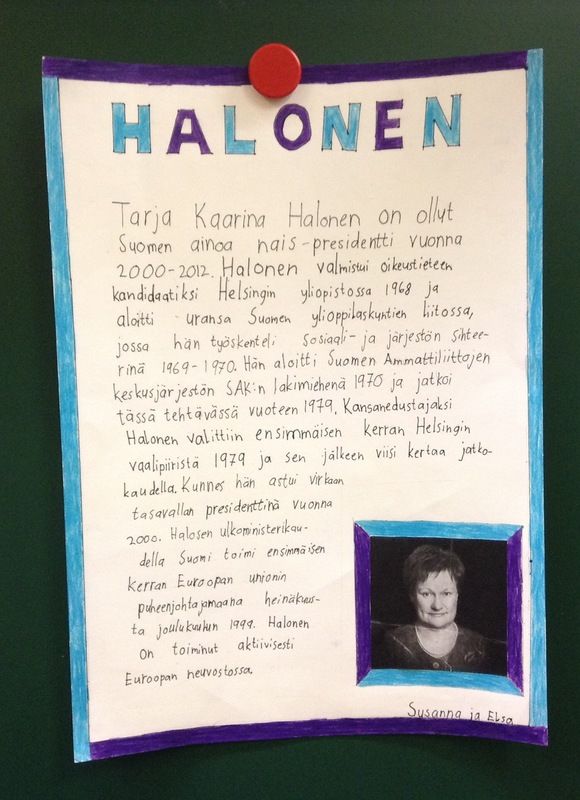 HALONEN
Tarja Kaarina Halonen on ollut
Suomen ainoa nais-presidentti vuonna
2000-2012. Halonen valmistui oikeustieteen
kandidaatiksi Helsingin yliopistossa 1968 ja
aloitti uransa Suomen ylioppilaskuntien liitossa,
jossa hän työskenteli sosiaali- ja järjestön sihtee-
rinä 1969-1970. Hän aloitti Suomen Ammattiliittojen
keskusjärjestön SAK:n lakimiehenä 1970 ja jatkoi
tässä tehtävässä vuoteen 1979. Kansanedustajaksi
Halonen valittiin ensimmäisen kerran Helsingin
vaalipiiristä 1979 ja sen jälkeen viisi kertaa jatko-
kaudella. Kunnes hän astui virkaan
tasavallan presidenttinä vuonna
2000. Halosen ulkoministerikau-
della Suomi toimi ensimmäisen
kerran Euroopan unionin
puheenjohtajamaana heinäkuus-
ta joulukuuhun 1999. Halonen
on toiminut aktiivisesti
Euroopan neuvostossa.
Susanna ja Elsa